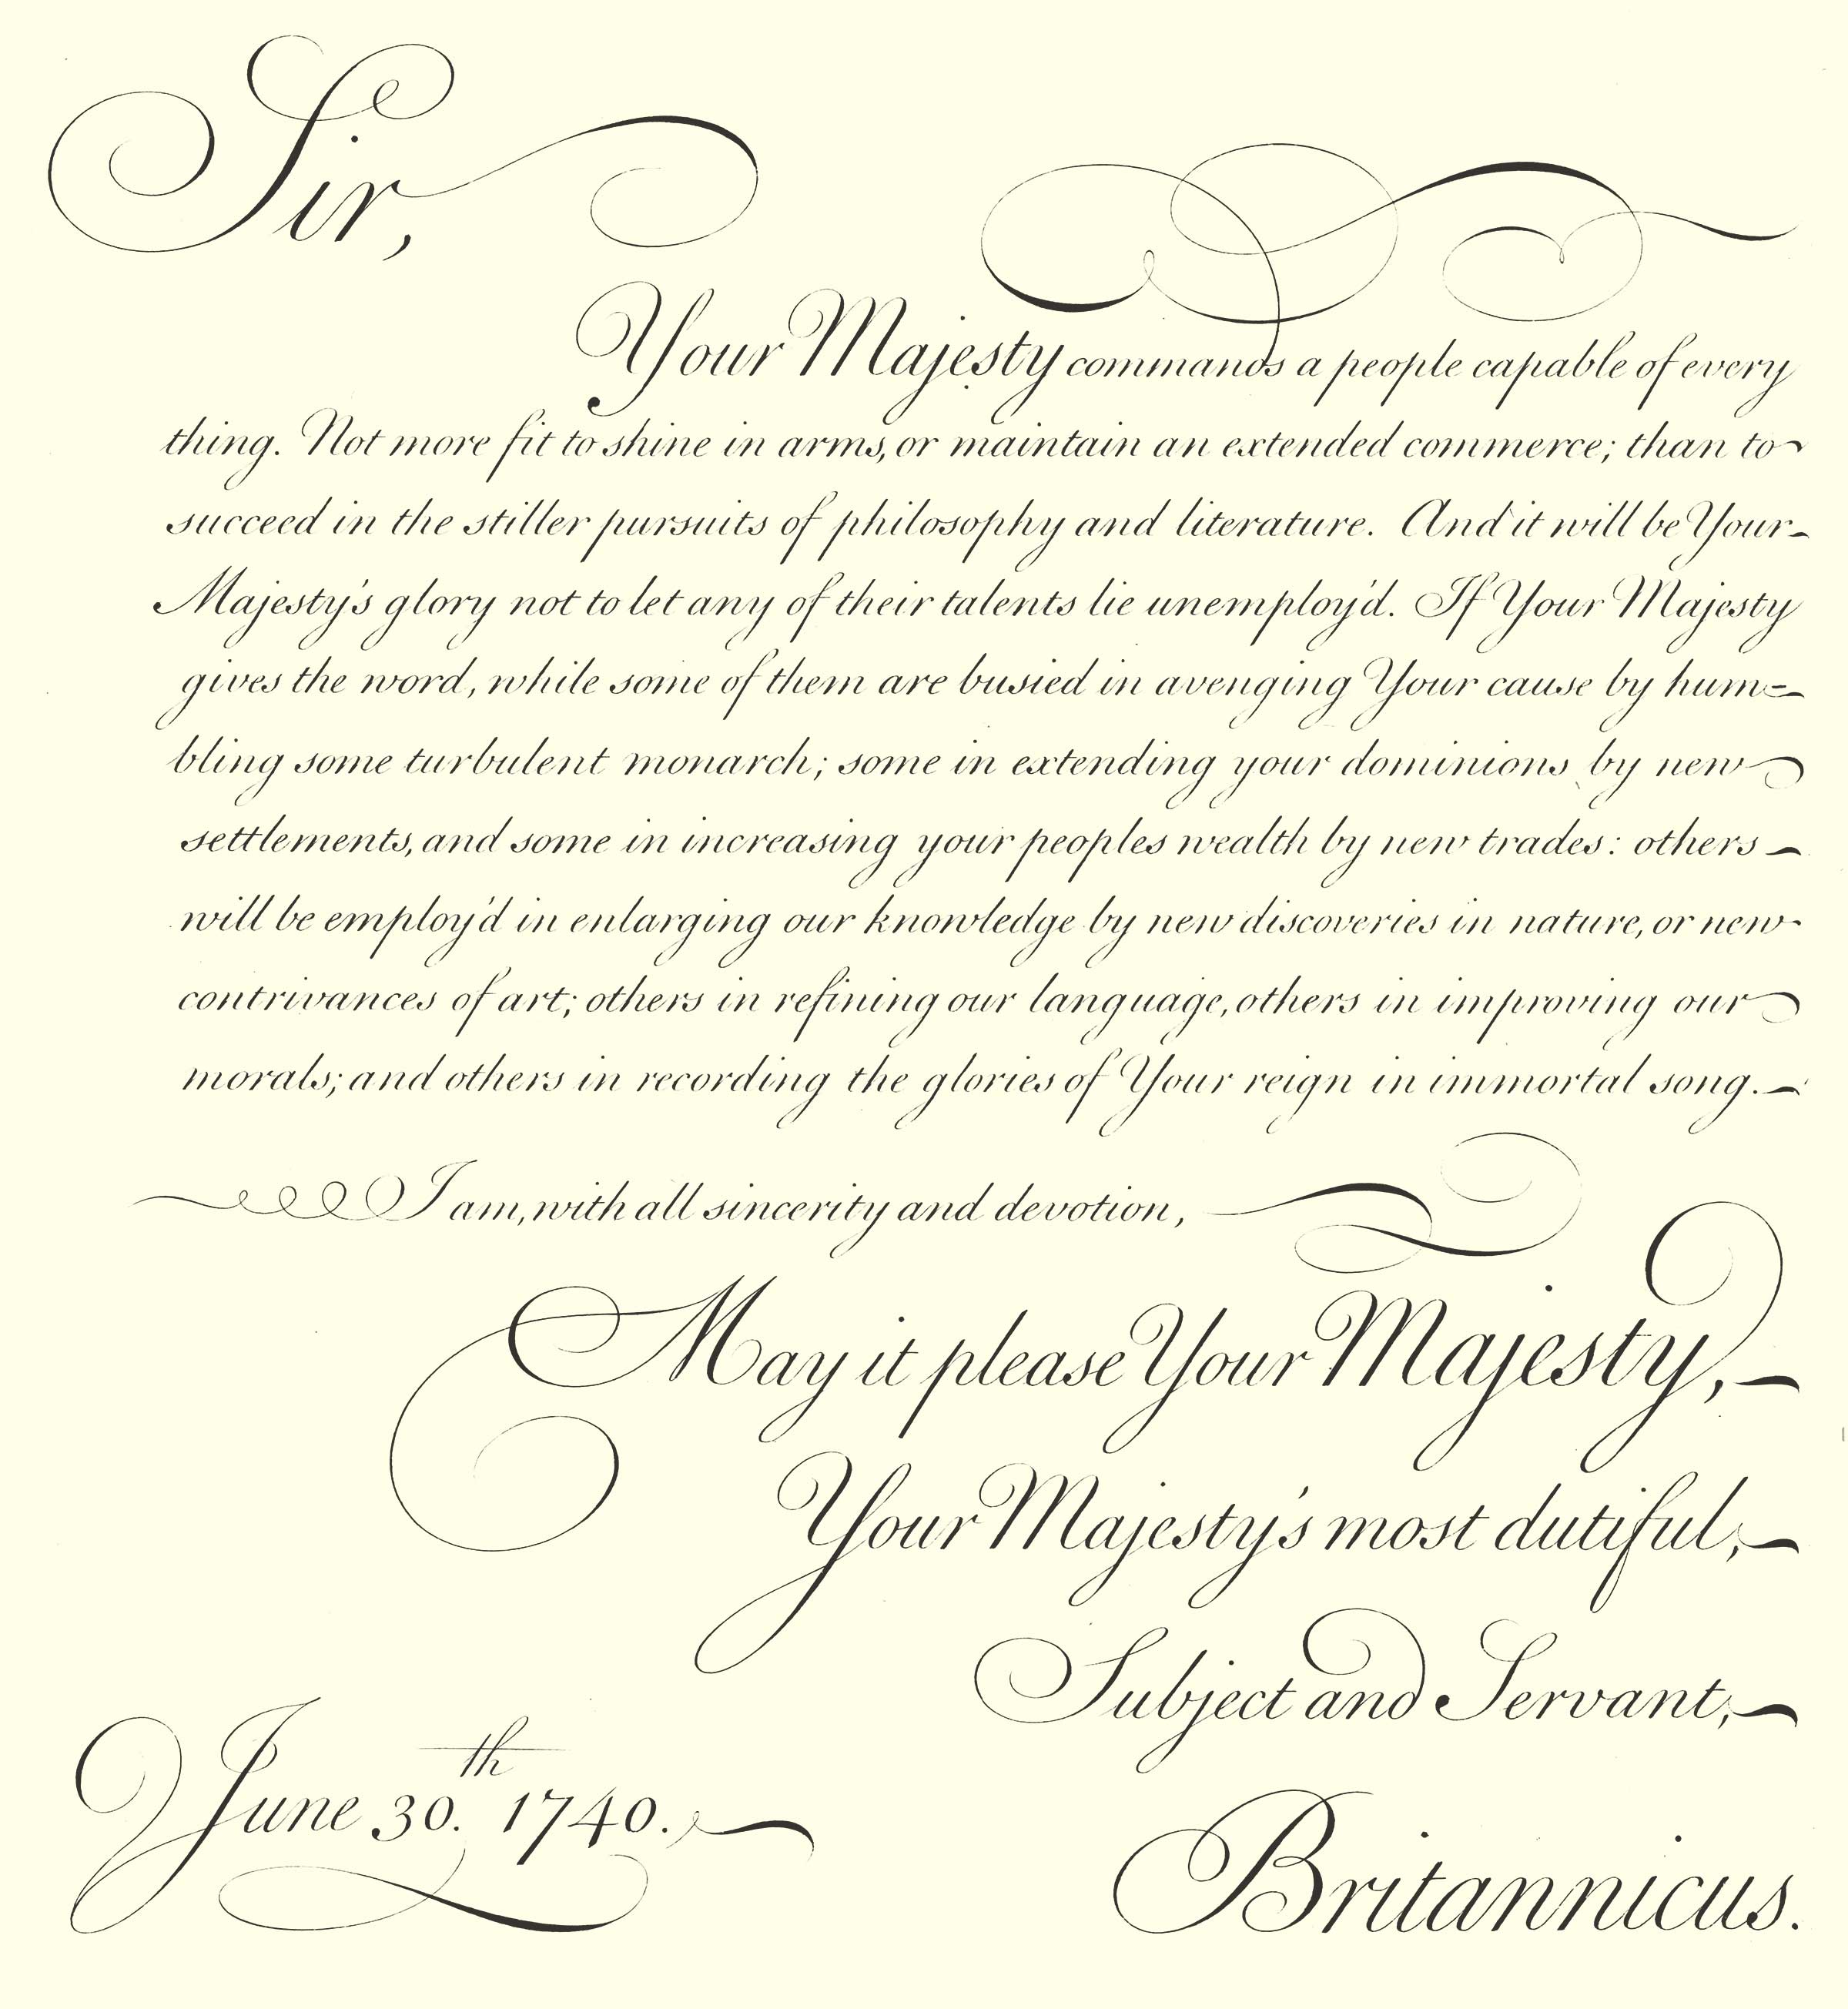 Sir,
Your Majesty commands a people capable of every
thing. Not more fit to shine in arms, or maintain an extended commerce; than to
succeed in the stiller pursuits of philosophy and literature. And it will be Your
Majesty's glory not to let any of their talents lie unemploy'd. If Your Majesty
gives the word, while some of them are busied in avenging Your cause by hum=
bling some turbulent monarch; some in extending your dominions by new
settlements, and some in increasing your peoples wealth by new trades: others
will be employ'd in enlarging our knowledge by new discoveries in nature, or new
contrivances of art; others in refining our language, others in improving our
morals; and others in recording the glories of Your reign in immortal song.
I am, with all sincerity and devotion,
May it please Your Majesty,
Your Majesty's most dutiful,
Subject and Servant,
June 30.th 1740.
Britannicus.